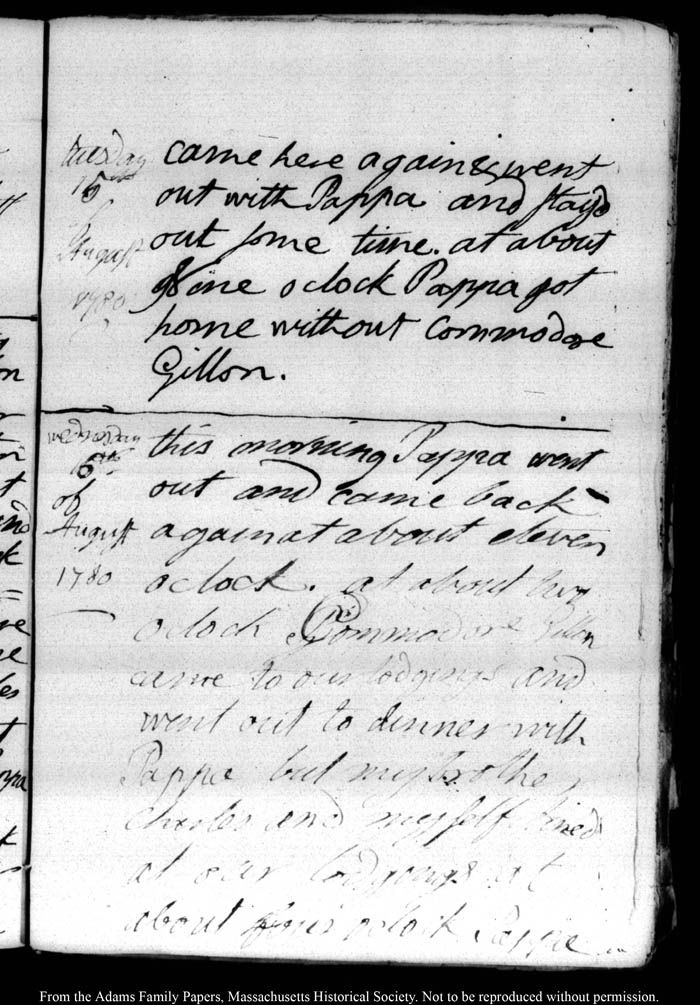 tuesday
15th
of
August
1780
came here again & went
out with Pappa and stayd
out some time. at about
nine o clock Pappa got
home without Commodore
Gillon.
wednesday
16th
of
August
1780
this morning Pappa went
out and came back
again at about eleven
o clock. at about two
o clock Commodore Gillon
came to our lodgings and
went out to dinner with
Pappa but my brother
Charles and myself dined
at our lodgings at
about four o clock Pappa
From the Adams Family Papers, Massachusetts Historical Society. Not to be reproduced without permission.